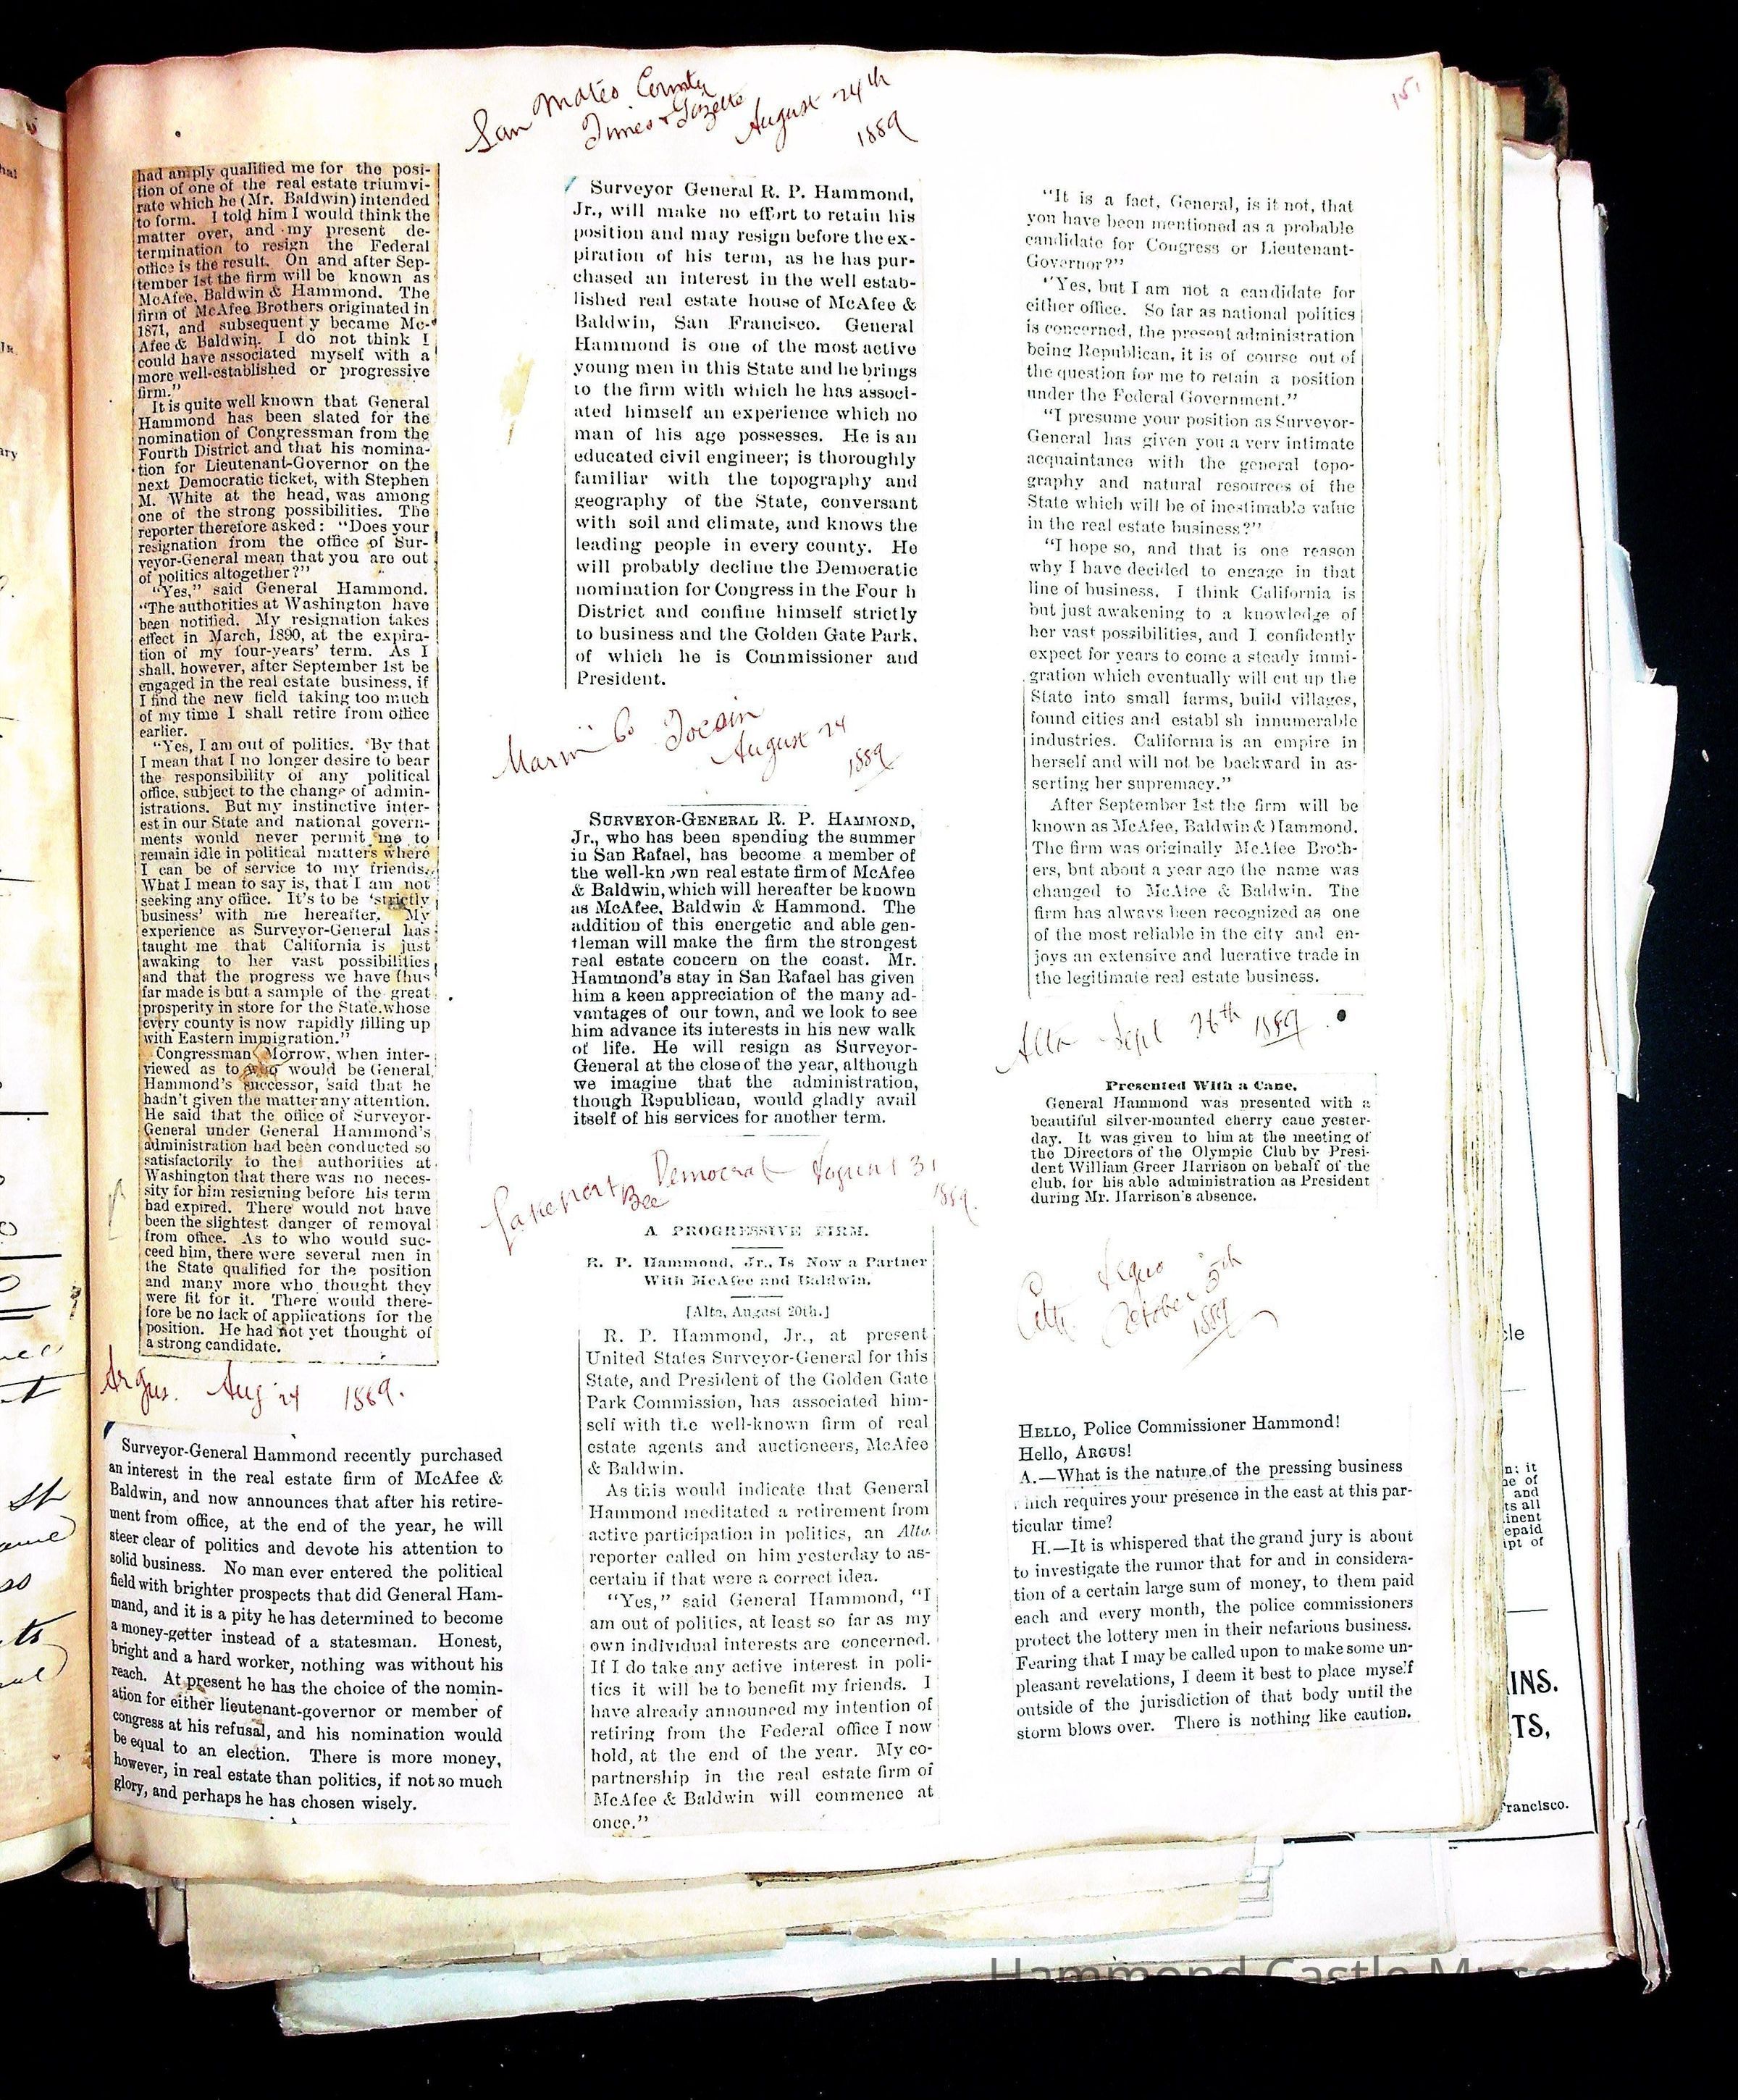 151
had amply qualified me for the posi-
tion of one of the real estate triumvi-
rate which he (Mr. Baldwin) intended
to form. I told him I would think the
matter over, and my present de-
termination to resign the Federal
office is the result. On and after Sep-
tember 1st the firm will be known as
McAfee, Baldwin & Hammond. The
firm of McAfee Brothers originated in
1871, and subsequent y became Mc-
Afee & Baldwin. I do not think I
could have associated myself with a
more well-established or progressive
firm."
It is quite well known that General
Hammond has been slated for the
nomination of Congressman from the
Fourth District and that his nomina-
tion for Lieutenant-Governor on the
next Democratic ticket, with Stephen
M. White at the head, was among
one of the strong possibilities. The
reporter therefore asked: "Does your
resignation from the office of Sur-
veyor-General mean that you are out
of politics altogether?"
"Yes," said General Hammond.
"The authorities at Washington have
been notified. My resignation takes
effect in March, 1890, at the expira-
tion of my four-years' term. As I
shall, however, after September 1st be
engaged in the real estate business, if
I find the new field taking too much
of my time I shall retire from office
earlier.
"Yes, I am out of politics. By that
I mean that I no longer desire to bear
the responsibility of any political
office, subject to the change of admin-
istrations. But my instinctive inter-
est in our State and national govern-
ments would never permit me to
remain idle in political matters where
I can be of service to my friends.
What I mean to say is, that I am not
seeking any office. It's to be 'strictly
business' with me hereafter. My
experience as Surveyor-General has
taught me that California is just
awaking to her vast possibilities
and that the progress we have thus
far made is but a sample of the great
prosperity in store for the State, whose
every county is now rapidly filling up
with Eastern immigration."
Congressman Morrow, when inter-
viewed as to who would be General
Hammond's successor, said that he
hadn't given the matter any attention.
He said that the office of Surveyor-
General under General Hammond's
administration had been conducted so
satisfactorily to the authorities at
Washington that there was no neces-
sity for him resigning before his term
had expired. There would not have
been the slightest danger of removal
from office. As to who would suc-
ceed him, there were several men in
the State qualified for the position
and many more who thought they
were fit for it. There would there-
fore be no lack of applications for the
position. He had not yet thought of
a strong candidate.
Argus. Aug 24 1889.
Surveyor-General Hammond recently purchased
an interest in the real estate firm of McAfee &
Baldwin, and now announces that after his retire-
ment from office, at the end of the year, he will
steer clear of politics and devote his attention to
solid business. No man ever entered the political
field with brighter prospects that did General Ham-
mand, and it is a pity he has determined to become
a money-getter instead of a statesman. Honest,
bright and a hard worker, nothing was without his
reach. At present he has the choice of the nomin-
ation for either lieutenant-governor or member of
congress at his refusal, and his nomination would
be equal to an election. There is more money,
however, in real estate than politics, if not so much
glory, and perhaps he has chosen wisely.
San Mateo County
Times & Gazette August 24th
1889
Surveyor General R. P. Hammond,
Jr., will make no effort to retain his
position and may resign before the ex-
piration of his term, as he has pur-
chased an interest in the well estab-
lished real estate house of McAfee &
Baldwin, San Francisco. General
Hammond is one of the most active
young men in this State and he brings
to the firm with which he has associ-
ated himself an experience which no
man of his age possesses. He is an
educated civil engineer; is thoroughly
familiar with the topography and
geography of the State, conversant
with soil and climate, and knows the
leading people in every county. He
will probably decline the Democratic
nomination for Congress in the Four h
District and confine himself strictly
to business and the Golden Gate Park,
of which he is Commissioner and
President.
Marin Co Tocsin
August 24
1889
SURVEYOR-GENERAL R. P. HAMMOND,
Jr., who has been spending the summer
in San Rafael, has become a member of
the well-kn wn real estate firm of McAfee
& Baldwin, which will hereafter be known
as McAfee, Baldwin & Hammond. The
addition of this energetic and able gen-
tleman will make the firm the strongest
real estate concern on the coast. Mr.
Hammond's stay in San Rafael has given
him a keen appreciation of the many ad-
vantages of our town, and we look to see
him advance its interests in his new walk
of life. He will resign as Surveyor-
General at the close of the year, although
we imagine that the administration,
though Republican, would gladly avail
itself of his services for another term.
Lakeport Bee Democrat August 31
1889.
A PROGRESSIVE FIRM.
R. P. Hammond, Jr., Is Now a Partner
With McAfee and Baldwin.
[Alta, August 20th.]
R. P. Hammond, Jr., at present
United States Surveyor-General for this
State, and President of the Golden Gate
Park Commission, has associated him-
self with the well-known firm of real
estate agents and auctioneers, McAfee
& Baldwin.
As this would indicate that General
Hammond meditated a retirement from
active participation in politics, an Alta
reporter called on him yesterday to as-
certain if that were a correct idea.
"Yes," said General Hammond, "I
am out of politics, at least so far as my
own individual interests are concerned.
If I do take any active interest in poli-
tics it will be to benefit my friends. I
have already announced my intention of
retiring from the Federal office I now
hold, at the end of the year. My co-
partnership in the real estate firm of
McAfee & Baldwin will commence at
once."
"It is a fact, General, is it not, that
you have been mentioned as a probable
candidate for Congress or Lieutenant-
Governor?"
"Yes, but I am not a candidate for
either office. So far as national politics
is concerned, the present administration
being Republican, it is of course out of
the question for me to retain a position
under the Federal Government."
"I presume your position as Surveyor-
General has given you a very intimate
acquaintance with the general topo-
graphy and natural resources of the
State which will be of inestimable value
in the real estate business?"
"I hope so, and that is one reason
why I have decided to engage in that
line of business. I think California is
but just awakening to a knowledge of
her vast possibilities, and I confidently
expect for years to come a steady immi-
gration which eventually will cut up the
State into small farms, build villages,
found cities and establ sh innumerable
industries. California is an empire in
herself and will not be backward in as-
serting her supremacy."
After September 1st the firm will be
known as McAfee, Baldwin & Hammond.
The firm was originally McAfee Broth-
ers, but about a year ago the name was
changed to McAfee & Baldwin. The
firm has always been recognized as one
of the most reliable in the city and en-
joys an extensive and lucrative trade in
the legitimate real estate business.
Alta Sept 26th 1889
Presented With a Cane.
General Hammond was presented with a
beautiful silver-mounted cherry cane yester-
day. It was given to him at the meeting of
the Directors of the Olympic Club by Presi-
dent William Greer Harrison on behalf of the
club, for his able administration as President
during Mr. Harrison's absence.
City Argus
October 5th
1889
HELLO, Police Commissioner Hammond!
Hello, ARGUS!
A.—What is the nature of the pressing business
hich requires your presence in the east at this par-
ticular time?
H.—It is whispered that the grand jury is about
to investigate the rumor that for and in considera-
tion of a certain large sum of money, to them paid
each and every month, the police commissioners
protect the lottery men in their nefarious business.
Fearing that I may be called upon to make some un-
pleasant revelations, I deem it best to place myself
outside of the jurisdiction of that body until the
storm blows over. There is nothing like caution.
INS.
TS,
Francisco.
Hammond Castle Museu